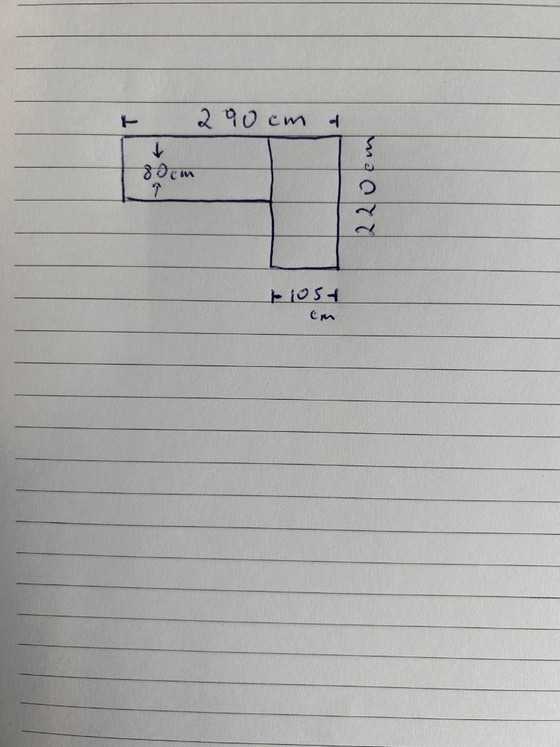 290 cm
80cm
220cm
105
cm